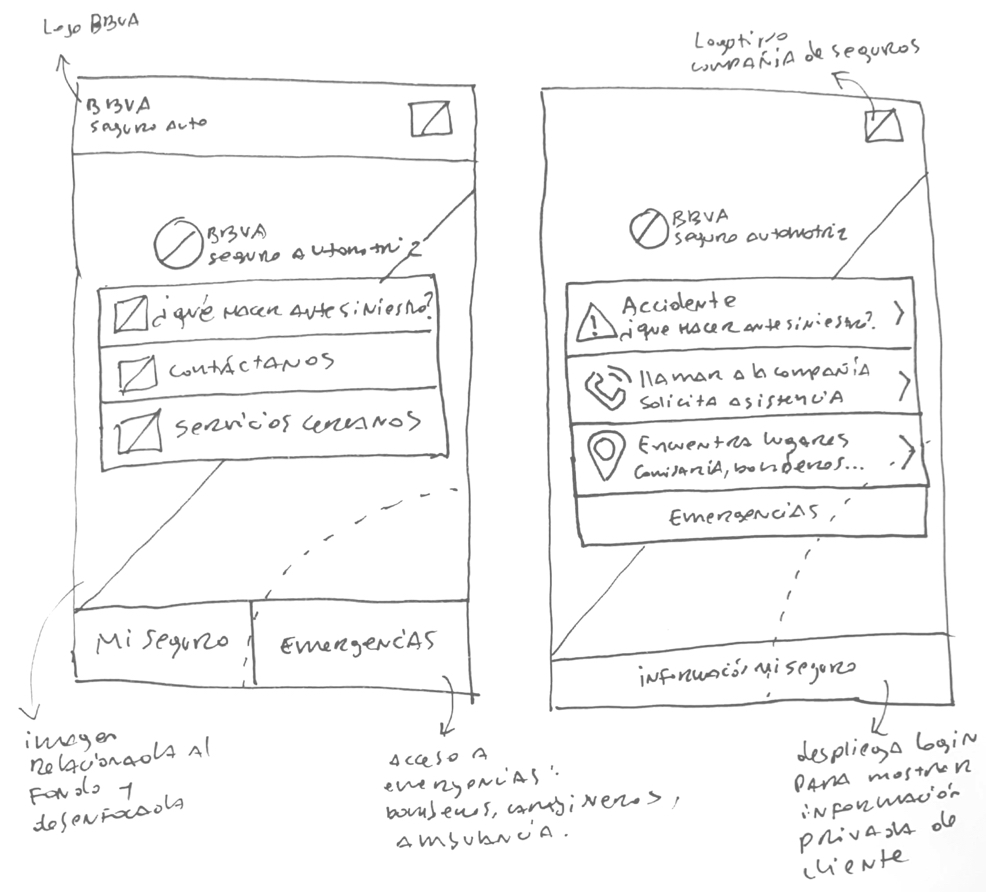 Logo BBVA
BBVA
seguro Auto
BBVA
seguro Automotriz
¿qué hacer ante siniestro?
contáctanos
servicios cercanos
Mi seguro
Emergencias
imagen
relacionada al
fondo y
desenfocada
acceso a
emergencias:
bomberos, carabineros,
ambulancia.
Logotipo
compañía de seguros
BBVA
seguro automotriz
Accidente
¿que hacer ante siniestro?
llamar a la compañía
solicita asistencia
Encuentra lugares
Comisaría, bomberos...
Emergencias
información mi seguro
despliega login
para mostrar
información
privada de
cliente